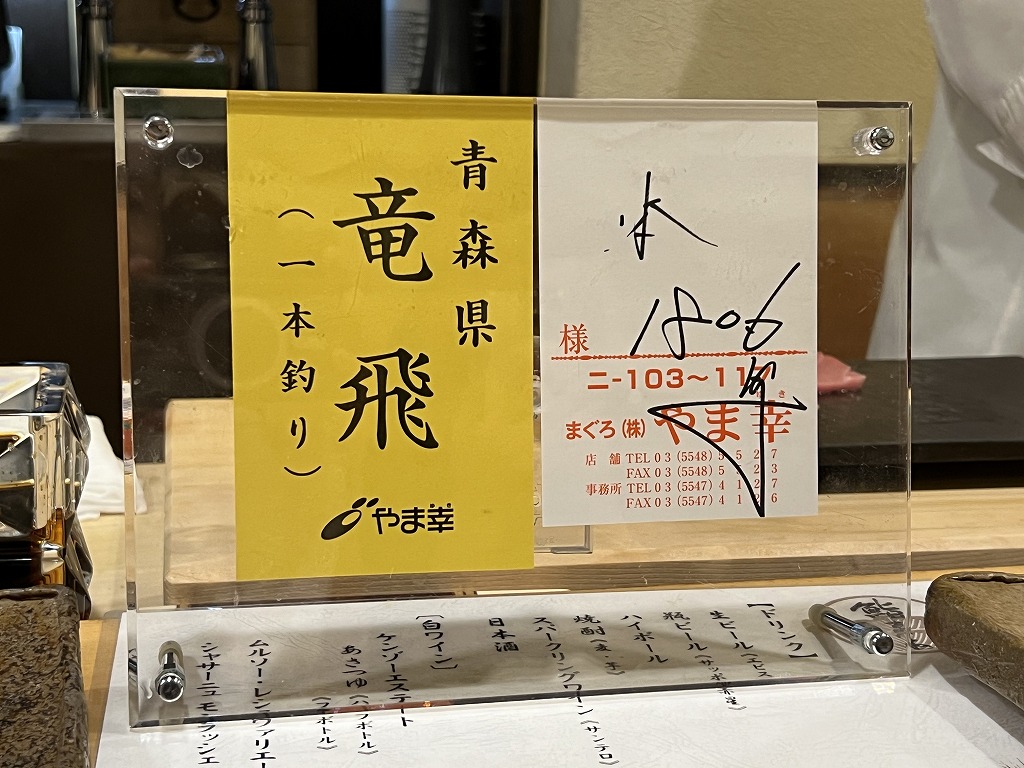 青森県
竜飛
（一本釣り）
やま幸
1806
様
ニ-103～11
まぐろ(株)やま幸
さき
店舗 TEL03(5548)5527
FAX03(5548)5 23
事務所 TEL03(5547)4127
FAX03(5547)41 6
【ドリンク】
生ビール《エビス
瓶ビール《サッポロ赤星》
ハイボール
焼酎《麦・芋》
スパークリングワイン《サンテロ》
日本酒
【白ワイン】
ケンゾーエステート
あさつゆ《ハーフボトル》
《フルボトル》
ムルソー・レ・ヴァリエー
シャサーニュ モンラッシェ